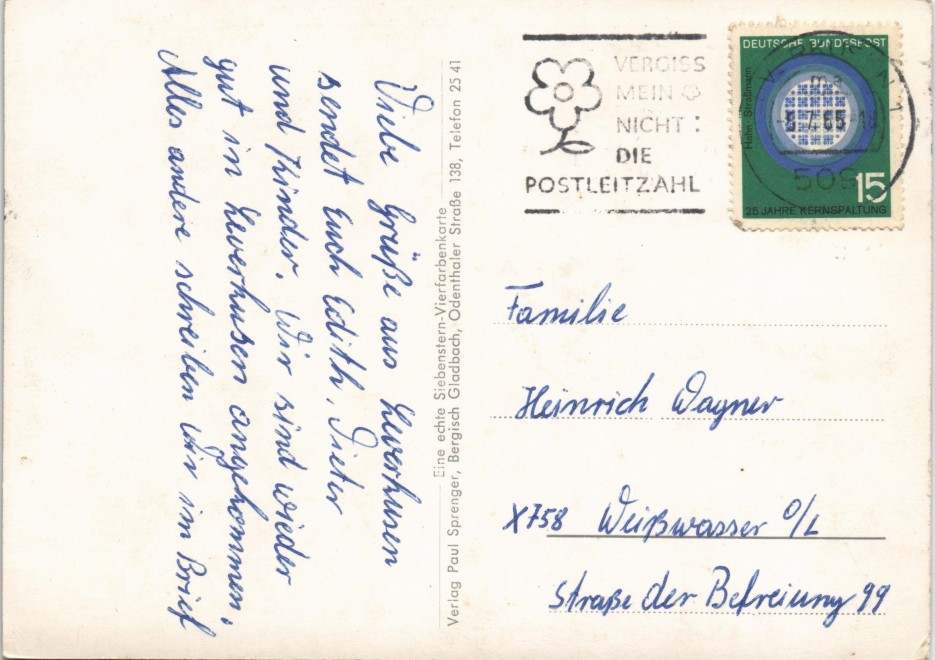 Viele Grüße aus Leverkusen
sendet Euch Edith, Dieter
und Kinder. Wir sind wieder
gut in Leverkusen angekommen.
Alles andere schreiben wir im Brief
Eine echte Siebenstern-Vierfarbenkarte
Verlag Paul Sprenger, Bergisch Gladbach, Odenthaler Straße 138, Telefon 25 41
VERGISS
MEIN
NICHT:
DIE
POSTLEITZAHL
DEUTSCHE BUNDESPOST
Hahn-Straßmann
15
25 JAHRE KERNSPALTUNG
509
Familie
Heinrich Wagner
X758 Weißwasser O/L
Straße der Befreiung 99